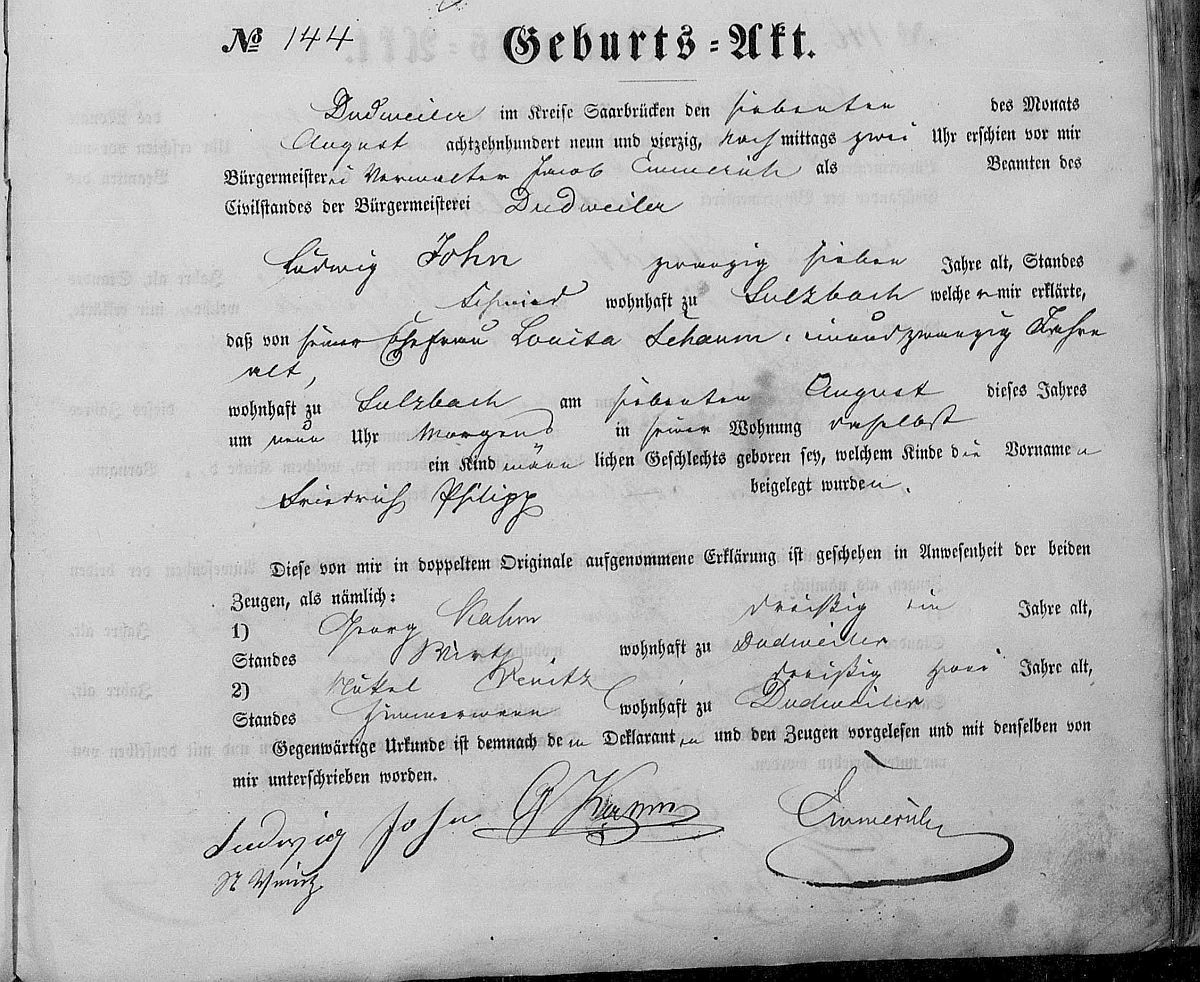 № 144 Geburts-Akt.
Dudweiler im Kreise Saarbrücken den siebenten des Monats
August achtzehnhundert neun und vierzig, nachmittags zwei Uhr erschien vor mir
Bürgermeisterei Verwalter Jacob Emmerich als Beamten des
Civilstandes der Bürgermeisterei Dudweiler
Ludwig John zwanzig sieben Jahre alt, Standes
Schmied wohnhaft zu Sulzbach welcher mir erklärte,
daß von seiner Ehefrau Louisa Schaum, einundzwanzig Jahre
alt,
wohnhaft zu Sulzbach am siebenten August dieses Jahres
um neun Uhr Morgens in seiner Wohnung daselbst
ein Kind männlichen Geschlechts geboren sey, welchem Kinde die Vornamen
Friedrich Philipp beigelegt wurden.
Diese von mir in doppeltem Originale aufgenommene Erklärung ist geschehen in Anwesenheit der beiden
Zeugen, als nämlich:
1) Georg dreißig ein Jahre alt,
Standes Wirth wohnhaft zu Dudweiler
2) dreißig zwei Jahre alt,
Standes Zimmermann wohnhaft zu Dudweiler
Gegenwärtige Urkunde ist demnach dem Deklaranten und den Zeugen vorgelesen und mit denselben von
mir unterschrieben worden.
Ludwig John G Emmerich